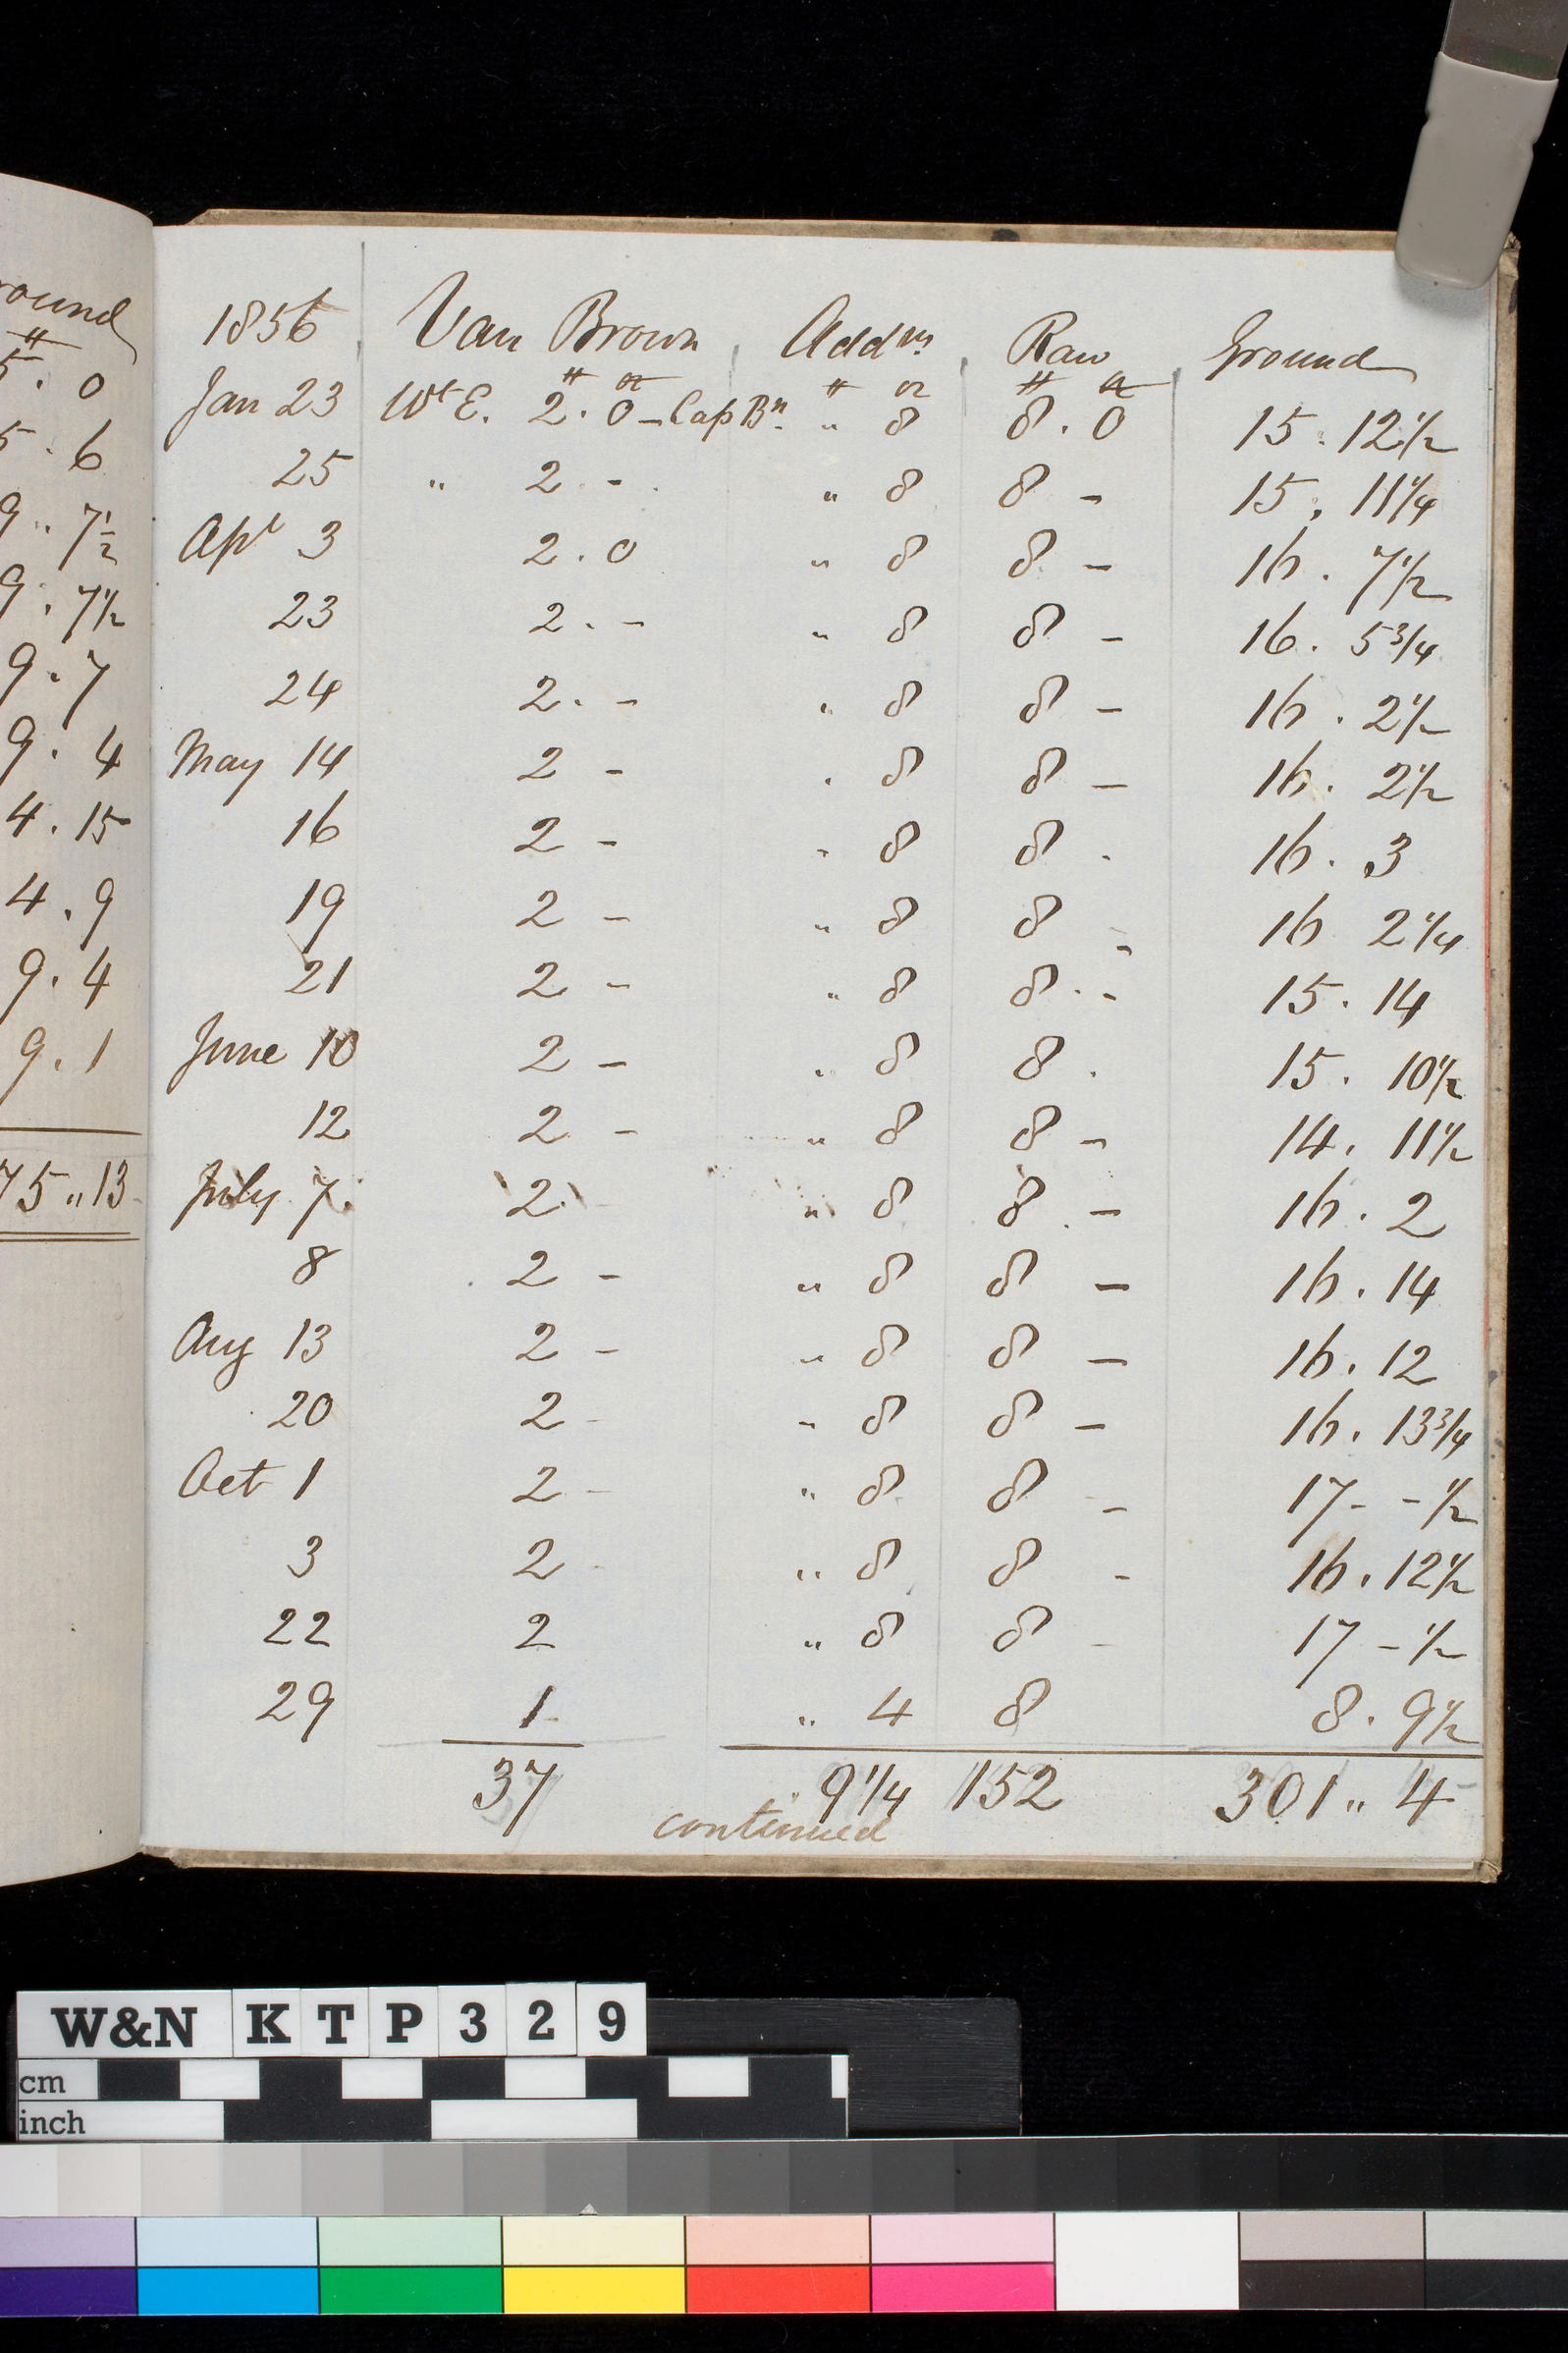 ound
#
5 . 0
5 . 6
9 " 7 1/2
9 . 7 1/2
9 . 7
9 . 4
4 . 15
4 . 9
9 . 4
9 . 1
75 " 13
1856 Van Brown Addns Raw Ground
# oz # oz # oz
Jan 23 Wt E. 2 . 0 - Cap Bn. " 8 8 . 0 15 . 12 1/2
25 " 2 - " 8 8 - 15 . 11 1/4
Apl 3 2 . 0 " 8 8 - 16 . 7 1/2
23 2 . - " 8 8 - 16 . 5 3/4
24 2 . - " 8 8 - 16 . 2 1/2
May 14 2 - " 8 8 - 16 . 2 1/2
16 2 - " 8 8 . 16 . 3
19 2 - " 8 8 - 16 2 1/4
21 2 - " 8 8 . - 15 . 14
June 10 2 - " 8 8 . 15 . 10 1/2
12 2 - " 8 8 - 14 . 11 1/2
July 7 . 2 - " 8 8 . - 16 . 2
8 2 - " 8 8 - 16 . 14
Aug 13 2 - " 8 8 - 16 . 12
20 2 - " 8 8 - 16 . 13 3/4
Oct 1 2 - " 8 8 - 17 - - 1/2
3 2 - " 8 8 - 16 . 12 1/2
22 2 " 8 8 - 17 - 1/2
29 1 " 4 8 8 . 9 1/2
37 9 1/4 152 301 " 4
continued
W&N KTP329
cm
inch